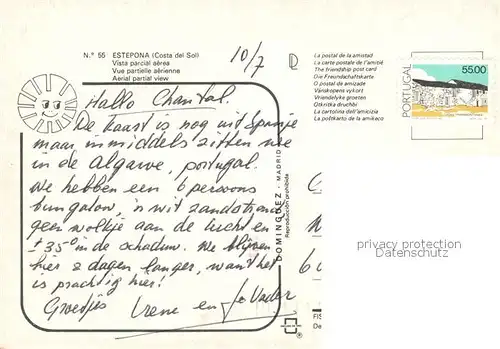 N.º 55 ESTEPONA (Costa del Sol)
Vista parcial aérea
Vue partielle aérienne
Aerial partial view
10/7
La postal de la amistad
La carte postale de l'amitié
The friendship post card
Die Freundschaftskarte
O postal de amizade
Vänskapens vykort
Vriendelyke groeten
Otkritka druchbi
La cartolina dell'amicizia
La postkarto de la amikeco
PORTUGAL
55.00
Hallo Chantal.
De kaart is nog uit Spanje
maar inmiddels zitten we
in de Algarve, portugal.
We hebben een 6 persoons
bungalow, 'n wit zandstrand
geen wolkje aan de lucht en
± 35° in de schaduw. We blijven
hier 2 dagen langer, want het
is prachtig hier!
Groetjes Irene en Jo Vader
DOMINGUEZ - MADRID
Reproducción prohibida
privacy protection
Datenschutz
FIS
De